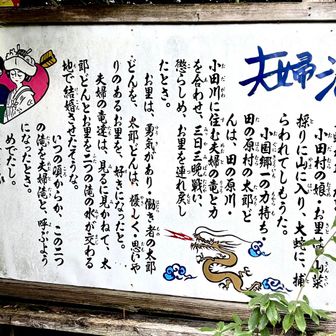 夫婦
小田村の娘・お里は、山菜
採りに山に入り、大蛇に、捕
らわれてしもうた。
小国郷一の力持ち
田の原村の太郎ど
んは、田の原川・
小田川に住む夫婦の竜と力
を合わせ、三日三晩戦い、
懲らしめ、お里を連れ戻し
たとさ。
お里は、勇気があり・働き者の太郎
どんを、太郎どんは、優しく・思いや
りのあるお里を、好きになったと。
夫婦の竜達は、見るに見かねて、太
郎どんとお里を二つの滝の水が交わる
地で結婚させたそうな。
いつの頃からか、この二つ
の滝を夫婦滝と、呼ぶよう
になったとさ。
めでたし、